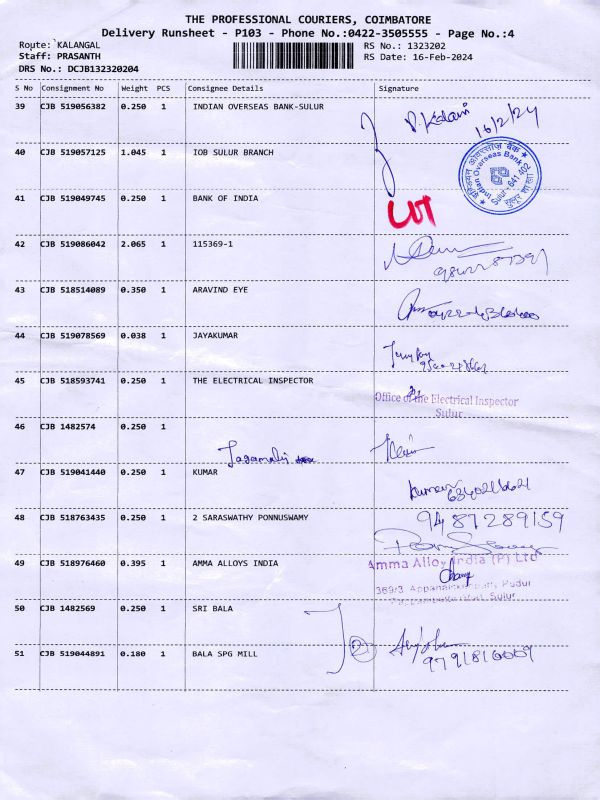 THE PROFESSIONAL COURIERS, COIMBATORE
Delivery Runsheet - P103 - Phone No.:0422-3505555 - Page No.:4
Route: KALANGAL
RS No.: 1323202
Staff: PRASANTH
RS Date: 16-Feb-2024
DRS No.: DCJB132320204
S No Consignment No Weight PCS Consignee Details Signature
39 CJB 519056382 0.250 1 INDIAN OVERSEAS BANK-SULUR
16/2/24
40 CJB 519057125 1.045 1 IOB SULUR BRANCH
Indian Overseas Bank
Sulur - 641 402
41 CJB 519049745 0.250 1 BANK OF INDIA
42 CJB 519086042 2.065 1 115369-1
43 CJB 518514089 0.350 1 ARAVIND EYE
44 CJB 519078569 0.038 1 JAYAKUMAR
45 CJB 518593741 0.250 1 THE ELECTRICAL INSPECTOR
Office of the Electrical Inspector
Sulur
46 CJB 1482574 0.250 1
47 CJB 519041440 0.250 1 KUMAR
Kumar
48 CJB 518763435 0.250 1 2 SARASWATHY PONNUSWAMY
9487289159
49 CJB 518976460 0.395 1 AMMA ALLOYS INDIA
Amma Alloy India (P) Ltd
369/3 Pudur
Sulur
50 CJB 1482569 0.250 1 SRI BALA
51 CJB 519044891 0.180 1 BALA SPG MILL